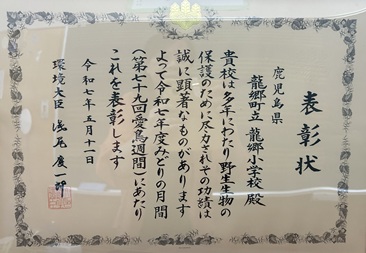 表彰状
鹿児島県
龍郷町立 龍郷小学校 殿
貴校は多年にわたり野生生物の
保護のために尽力されその功績は
誠に顕著なものがあります
よって令和七年度みどりの月間
(第七十九回愛鳥週間)にあたり
これを表彰します
令和七年五月十一日
環境大臣 浅尾慶一郎